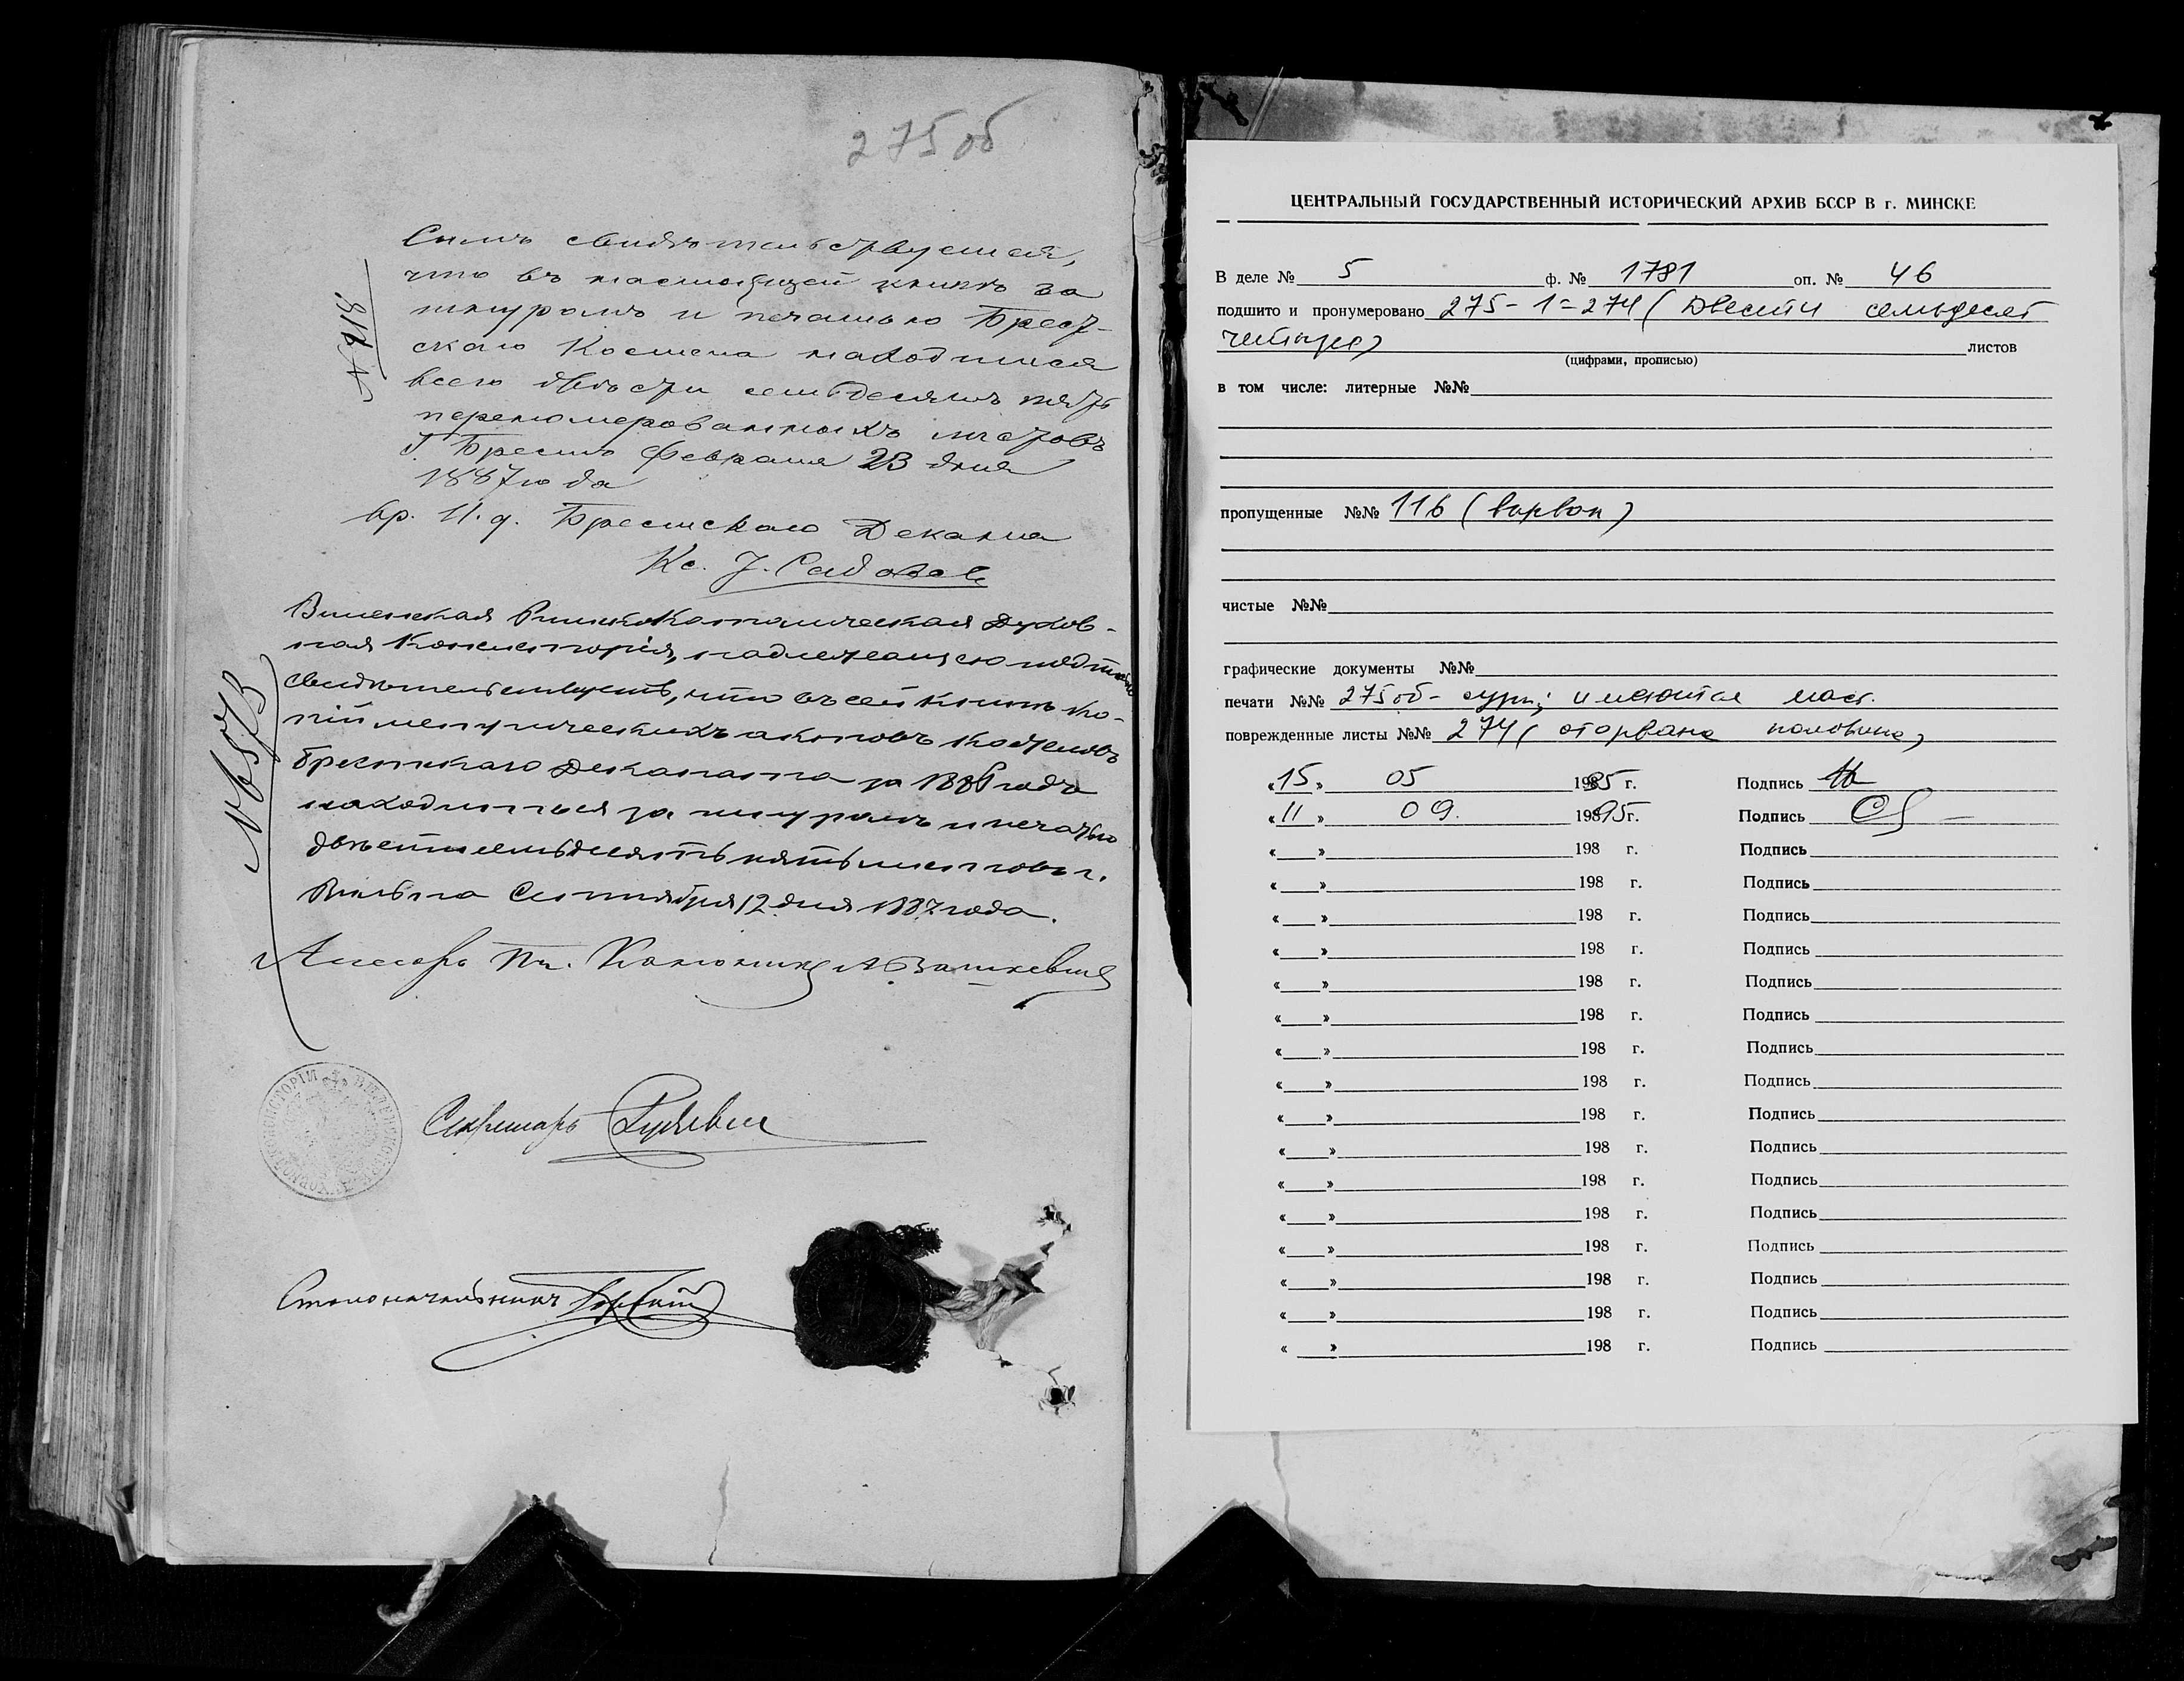 275 об
№ 918
Симъ свидѣтельствуется,
что въ настоящей книгѣ за
шнуромъ и печатью Брест-
скаго Костела находится
всего двѣсти семьдесятъ пять
перенумерованныхъ листовъ
Г. Брестъ Февраля 23 дня
1887 года
вр. И. д. Брестскаго Декана
Кс. J.
№ 6573
Виленская Римскокатолическая Духов-
ная Консисторія, надлежащею подписью
свидѣтельствуетъ, что въ сей книгѣ ко-
пій метрическихъ актовъ костеловъ
Брестскаго Деканата за 1886 годъ
находится за шнуромъ и печатью
двѣсти семьдесять пять листовъ г.
Вильна Сентября 12 дня 1887 года.
Ассесоръ Каноникъ
Секретарь
Столоначальникъ
ЦЕНТРАЛЬНЫЙ ГОСУДАРСТВЕННЫЙ ИСТОРИЧЕСКИЙ АРХИВ БССР В г. МИНСКЕ
В деле № 5 ф. № 1781 оп. № 46
подшито и пронумеровано 275-1=274 (Двести семьдесят
четыре) листов
(цифрами, прописью)
в том числе: литерные №№
пропущенные №№ 116 (вырван)
чистые №№
графические документы №№
печати №№ 275об- сург; имеются маст.
поврежденные листы №№ 274 (оторвана половина)
«15» 05 1985 г. Подпись
«11» 09. 1995 г. Подпись
« » 198 г. Подпись
« » 198 г. Подпись
« » 198 г. Подпись
« » 198 г. Подпись
« » 198 г. Подпись
« » 198 г. Подпись
« » 198 г. Подпись
« » 198 г. Подпись
« » 198 г. Подпись
« » 198 г. Подпись
« » 198 г. Подпись
« » 198 г. Подпись
« » 198 г. Подпись
« » 198 г. Подпись
« » 198 г. Подпись
« » 198 г. Подпись